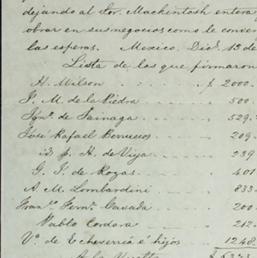 dejando al Sor. Mackintosh entera
obrar en sus negocios como le conven
las esperas. Mexico, Dic. 13 de
Lista de los que firmaron
H. Wilson $ 2000.
J. M. de la Piedra 500.
Ign. de 529.
José Rafael Berruecos 209.
id J. H. de 239
G. J. de Rozas 401
A. M. Lombardini 833
Fran. Fern. 200
Pablo Cordova 212
V. de Echeverria é hijos 1248
A la Vuelta $